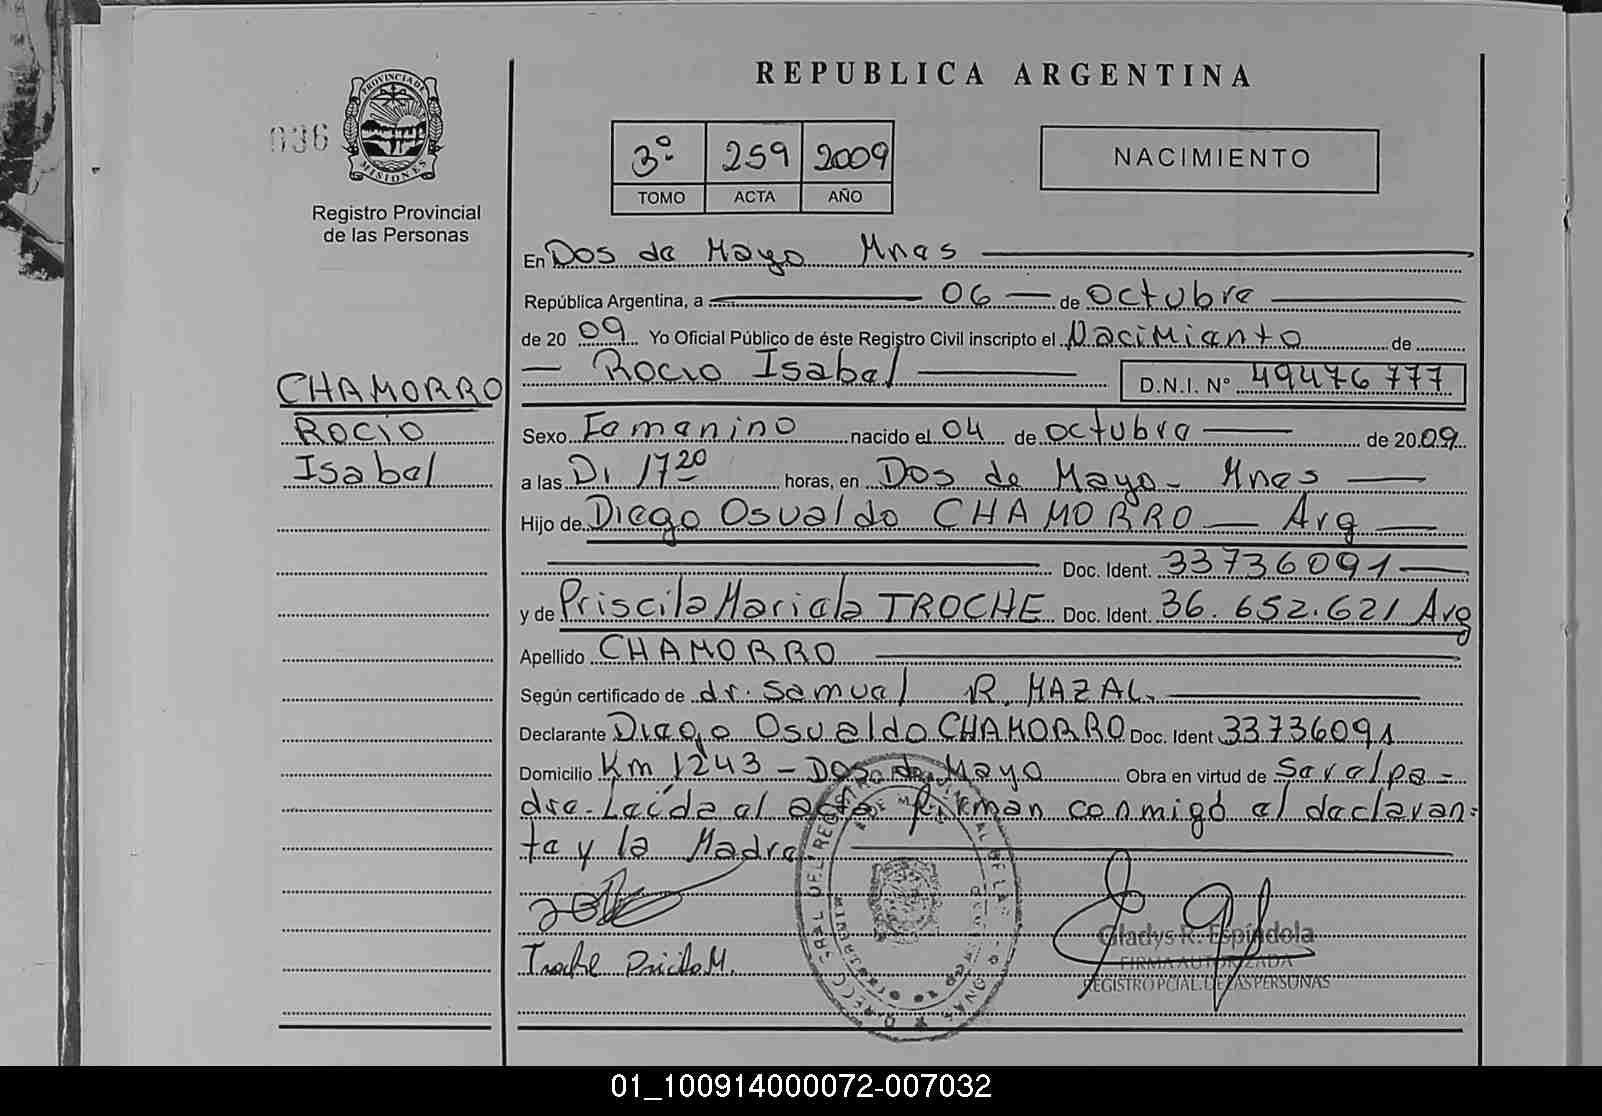 REPUBLICA ARGENTINA
036
PROVINCIA DE MISIONES
Registro Provincial
de las Personas
3º 259 2009
TOMO ACTA AÑO
NACIMIENTO
En Dos de Mayo Mnes
República Argentina, a 06 de octubre
de 20 09 Yo Oficial Público de éste Registro Civil inscripto el Nacimiento de
Rocio Isabel D.N.I. Nº 49476777
CHAMORRO
ROCIO
Isabel
Sexo Femenino nacido el 04 de octubre de 2009
a las DI 17 20 horas, en Dos de Mayo - Mnes
Hijo de Diego Osvaldo CHAMORRO Arg
Doc. Ident. 33736091
y de Priscila Mariela TROCHE Doc. Ident. 36.652.621 Arg
Apellido CHAMORRO
Según certificado de dr. Samuel R. MAZAL.
Declarante Diego Osvaldo CHAMORRO Doc. Ident 33736091
Domicilio Km 1243 - Dos de Mayo Obra en virtud de Ser el pa-
dre. Leída el acta firman conmigo el declaran-
te y la Madre
Troche Priscila M.
Gladys R. Espíndola
FIRMA AUTORIZADA
REGISTRO PCIAL. DE LAS PERSONAS
01_100914000072-007032